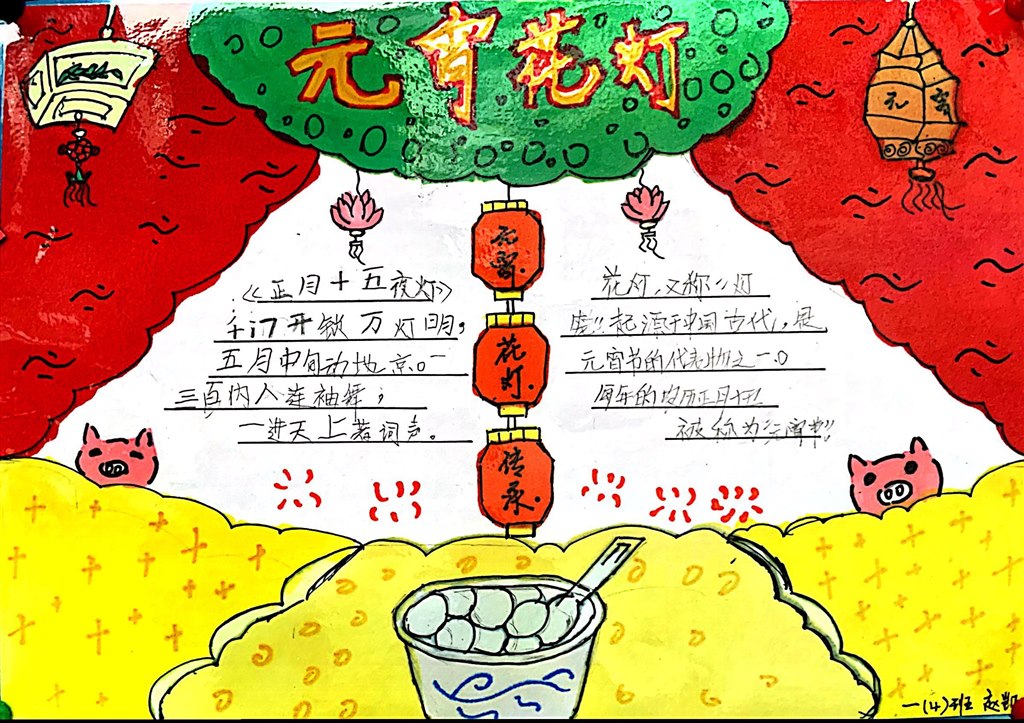 元宵花灯
元宵
元宵.
花灯.
传承.
《正月十五夜灯》
千门开锁万灯明,
五月中旬动地京。一
三百内人连袖舞;
一进天上著词声。
花灯,又称“灯
起源于中国古代,是
元宵节的代表物之一。
每年的
被称为“元宵节”
一(4)班 赵凯